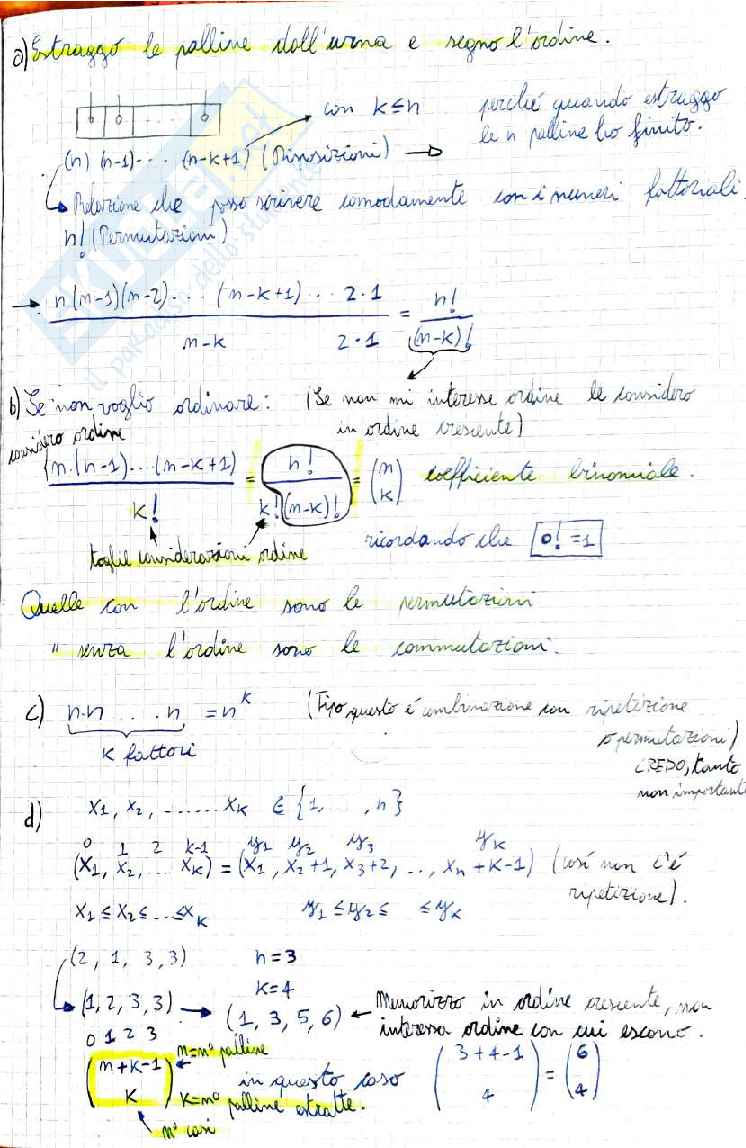 a) Estraggo le palline dall'urna e segno l'ordine.
con k ≤ n perché quando estraggo
le n palline ho finito.
(n) (n-1) ... (n-k+1) (Disposizioni) →
Relazione che posso scrivere comodamente con i numeri fattoriali.
n! (Permutazioni)
→ n(n-1)(n-2)... (n-k+1)... 2·1 / n-k 2·1 = n! / (n-k)!
b) Se non voglio ordinare: (Se non mi interesse ordine le considero
in ordine crescente)
considero ordine
n·(n-1)...(n-k+1) / k! = n! / k!(n-k)! = (n k) coefficiente binomiale.
toglie considerazioni ordine
ricordando che 0! = 1
Quelle con l'ordine sono le permutazioni
" senza l'ordine sono le commutazioni.
c) n·n ... n = n^k (Tipo questo è combinazione con ripetizione
o permutazioni)
k fattori
CREDO, tanto
non importante
d) x1, x2, ...... xk ∈ {1, ..., n}
0 1 2 k-1 y1 y2 y3 yk
(x1, x2, ... xk) = (x1, x2+1, x3+2, ..., xn+k-1) (così non c'è
ripetizione).
x1 ≤ x2 ≤ ... ≤ xk y1 ≤ y2 ≤ ≤ yk
(2, 1, 3, 3) n=3
k=4
(1, 2, 3, 3) → (1, 3, 5, 6) ← Memorizzo in ordine crescente, non
0 1 2 3 interessa ordine con cui escono.
(n+k-1 k) n=n° palline
in questo caso (3+4-1 4) = (6 4)
k=n° palline estratte.
n° casi
SKUOLA.net
il paradiso dello studente